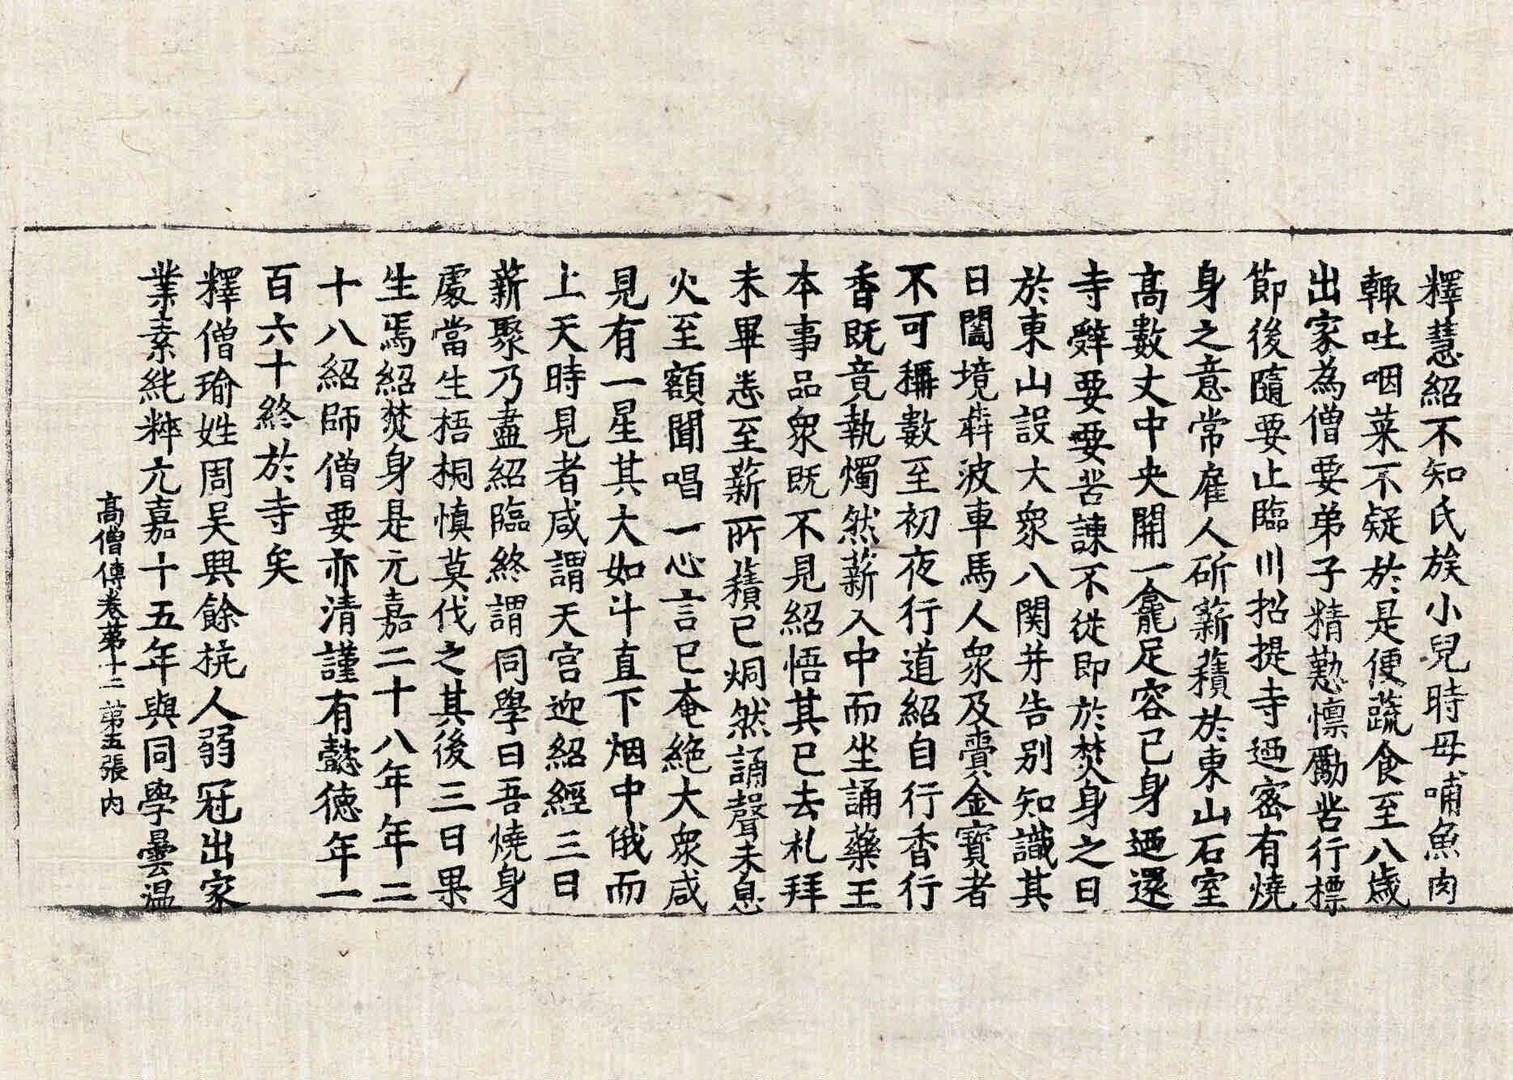 釋慧紹不知氏族小兒時母哺魚肉
輙吐咽菜不疑於是便蔬食至八歲
出家為僧要弟子精懃懍勵苦行標
節後隨要止臨川招提寺迺密有燒
身之意常雇人斫薪積於東山石室
高數丈中央開一龕足容己身迺還
寺辭要要苦諫不從即於焚身之日
於東山設大衆八関并告別知識其
日闔境犇波車馬人衆及賷金寶者
不可稱數至初夜行道紹自行香行
香既竟執燭然薪入中而坐誦藥王
本事品衆既不見紹悟其已去礼拜
未畢悉至薪所䕒已烔然誦聲未息
火至額聞唱一心言已奄絶大衆咸
見有一星其大如斗直下烟中俄而
上天時見者咸謂天宮迎紹經三日
薪聚乃盡紹臨終謂同學曰吾燒身
處當生梧桐慎莫伐之其後三日果
生焉紹焚身是元嘉二十八年年二
十八紹師僧要亦清謹有懿德年一
百六十終於寺矣
釋僧瑜姓周吳興餘杭人弱冠出家
業素純粹元嘉十五年與同學曇温
高僧傳卷第十二 第五張 内